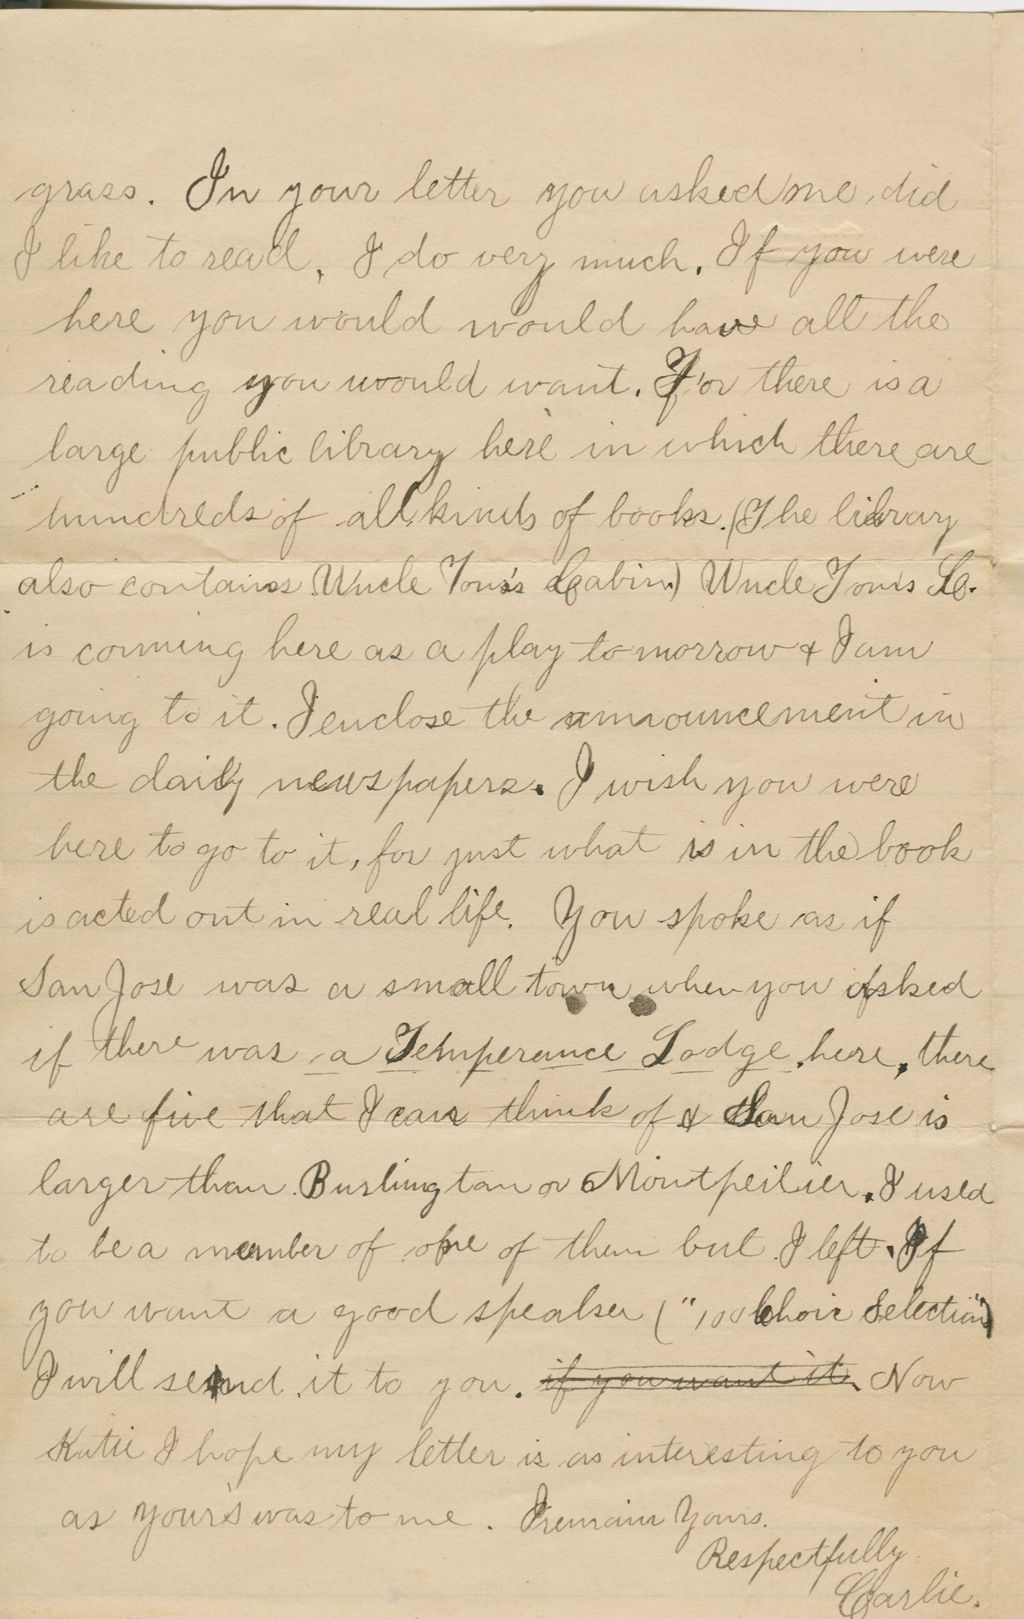 grass. In your letter you asked me, did
I like to read, I do very much. If you were
here you would would have all the
reading you would want. For there is a
large public library here in which there are
hundreds of all kinds of books. (The library
also contains Uncle Tom's Cabin.) Uncle Tom's C.
is comming here as a play to morrow & I am
going to it. I enclose the announcement in
the daily newspapers. I wish you were
here to go to it, for just what is in the book
is acted out in real life. You spoke as if
San Jose was a small town when you asked
if there was a Temperance Lodge here, there
are five that I can think of & San Jose is
larger than Burlington or Montpeilier. I used
to be a member of one of them but I left. If
you want a good speaker ("100 Choir Selection")
I will send it to you. if you want it. Now
Katie I hope my letter is as interesting to you
as your's was to me. I remain Yours.
Respectfully
Carlie.